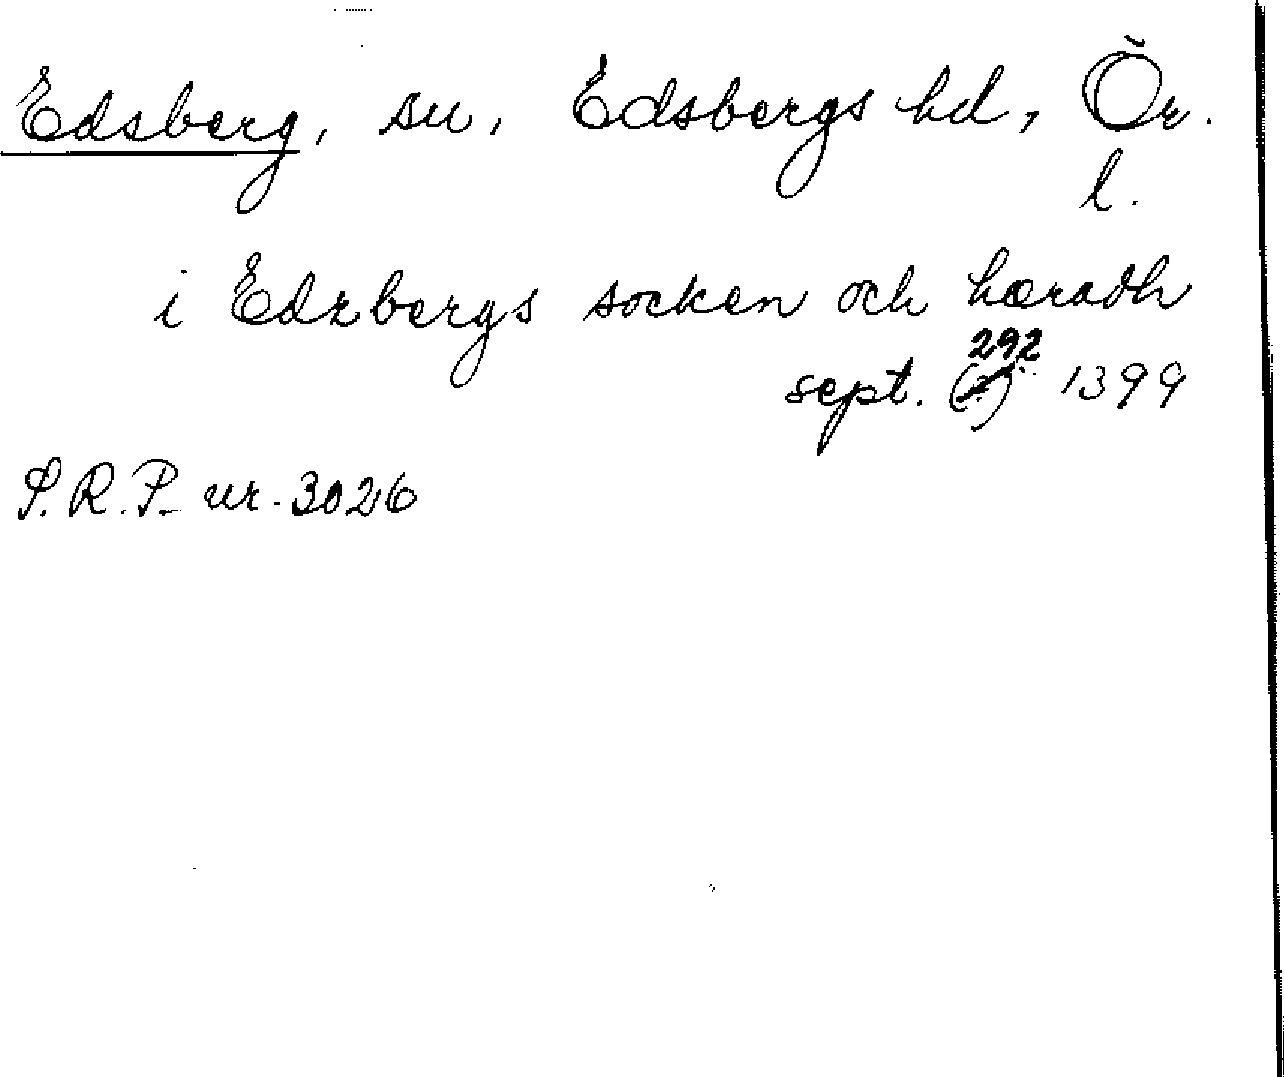 Edsberg, sn, Edsbergs hd, Ör.
l.
i Edzbergs socken och hæradh
292
sept. 1399
S.R.P. nr. 3026